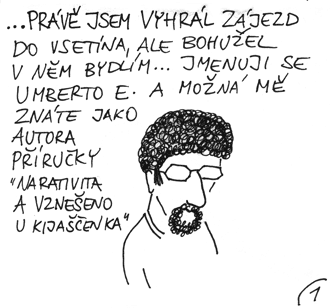 ...PRÁVĚ JSEM VYHRÁL ZÁJEZD
DO VSETÍNA, ALE BOHUŽEL
V NĚM BYDLÍM... JMENUJI SE
UMBERTO E. A MOŽNÁ MĚ
ZNÁTE JAKO
AUTORA
PŘÍRUČKY
"NARATIVITA
A VZNEŠENO
U KIJAŠČENKA"
1